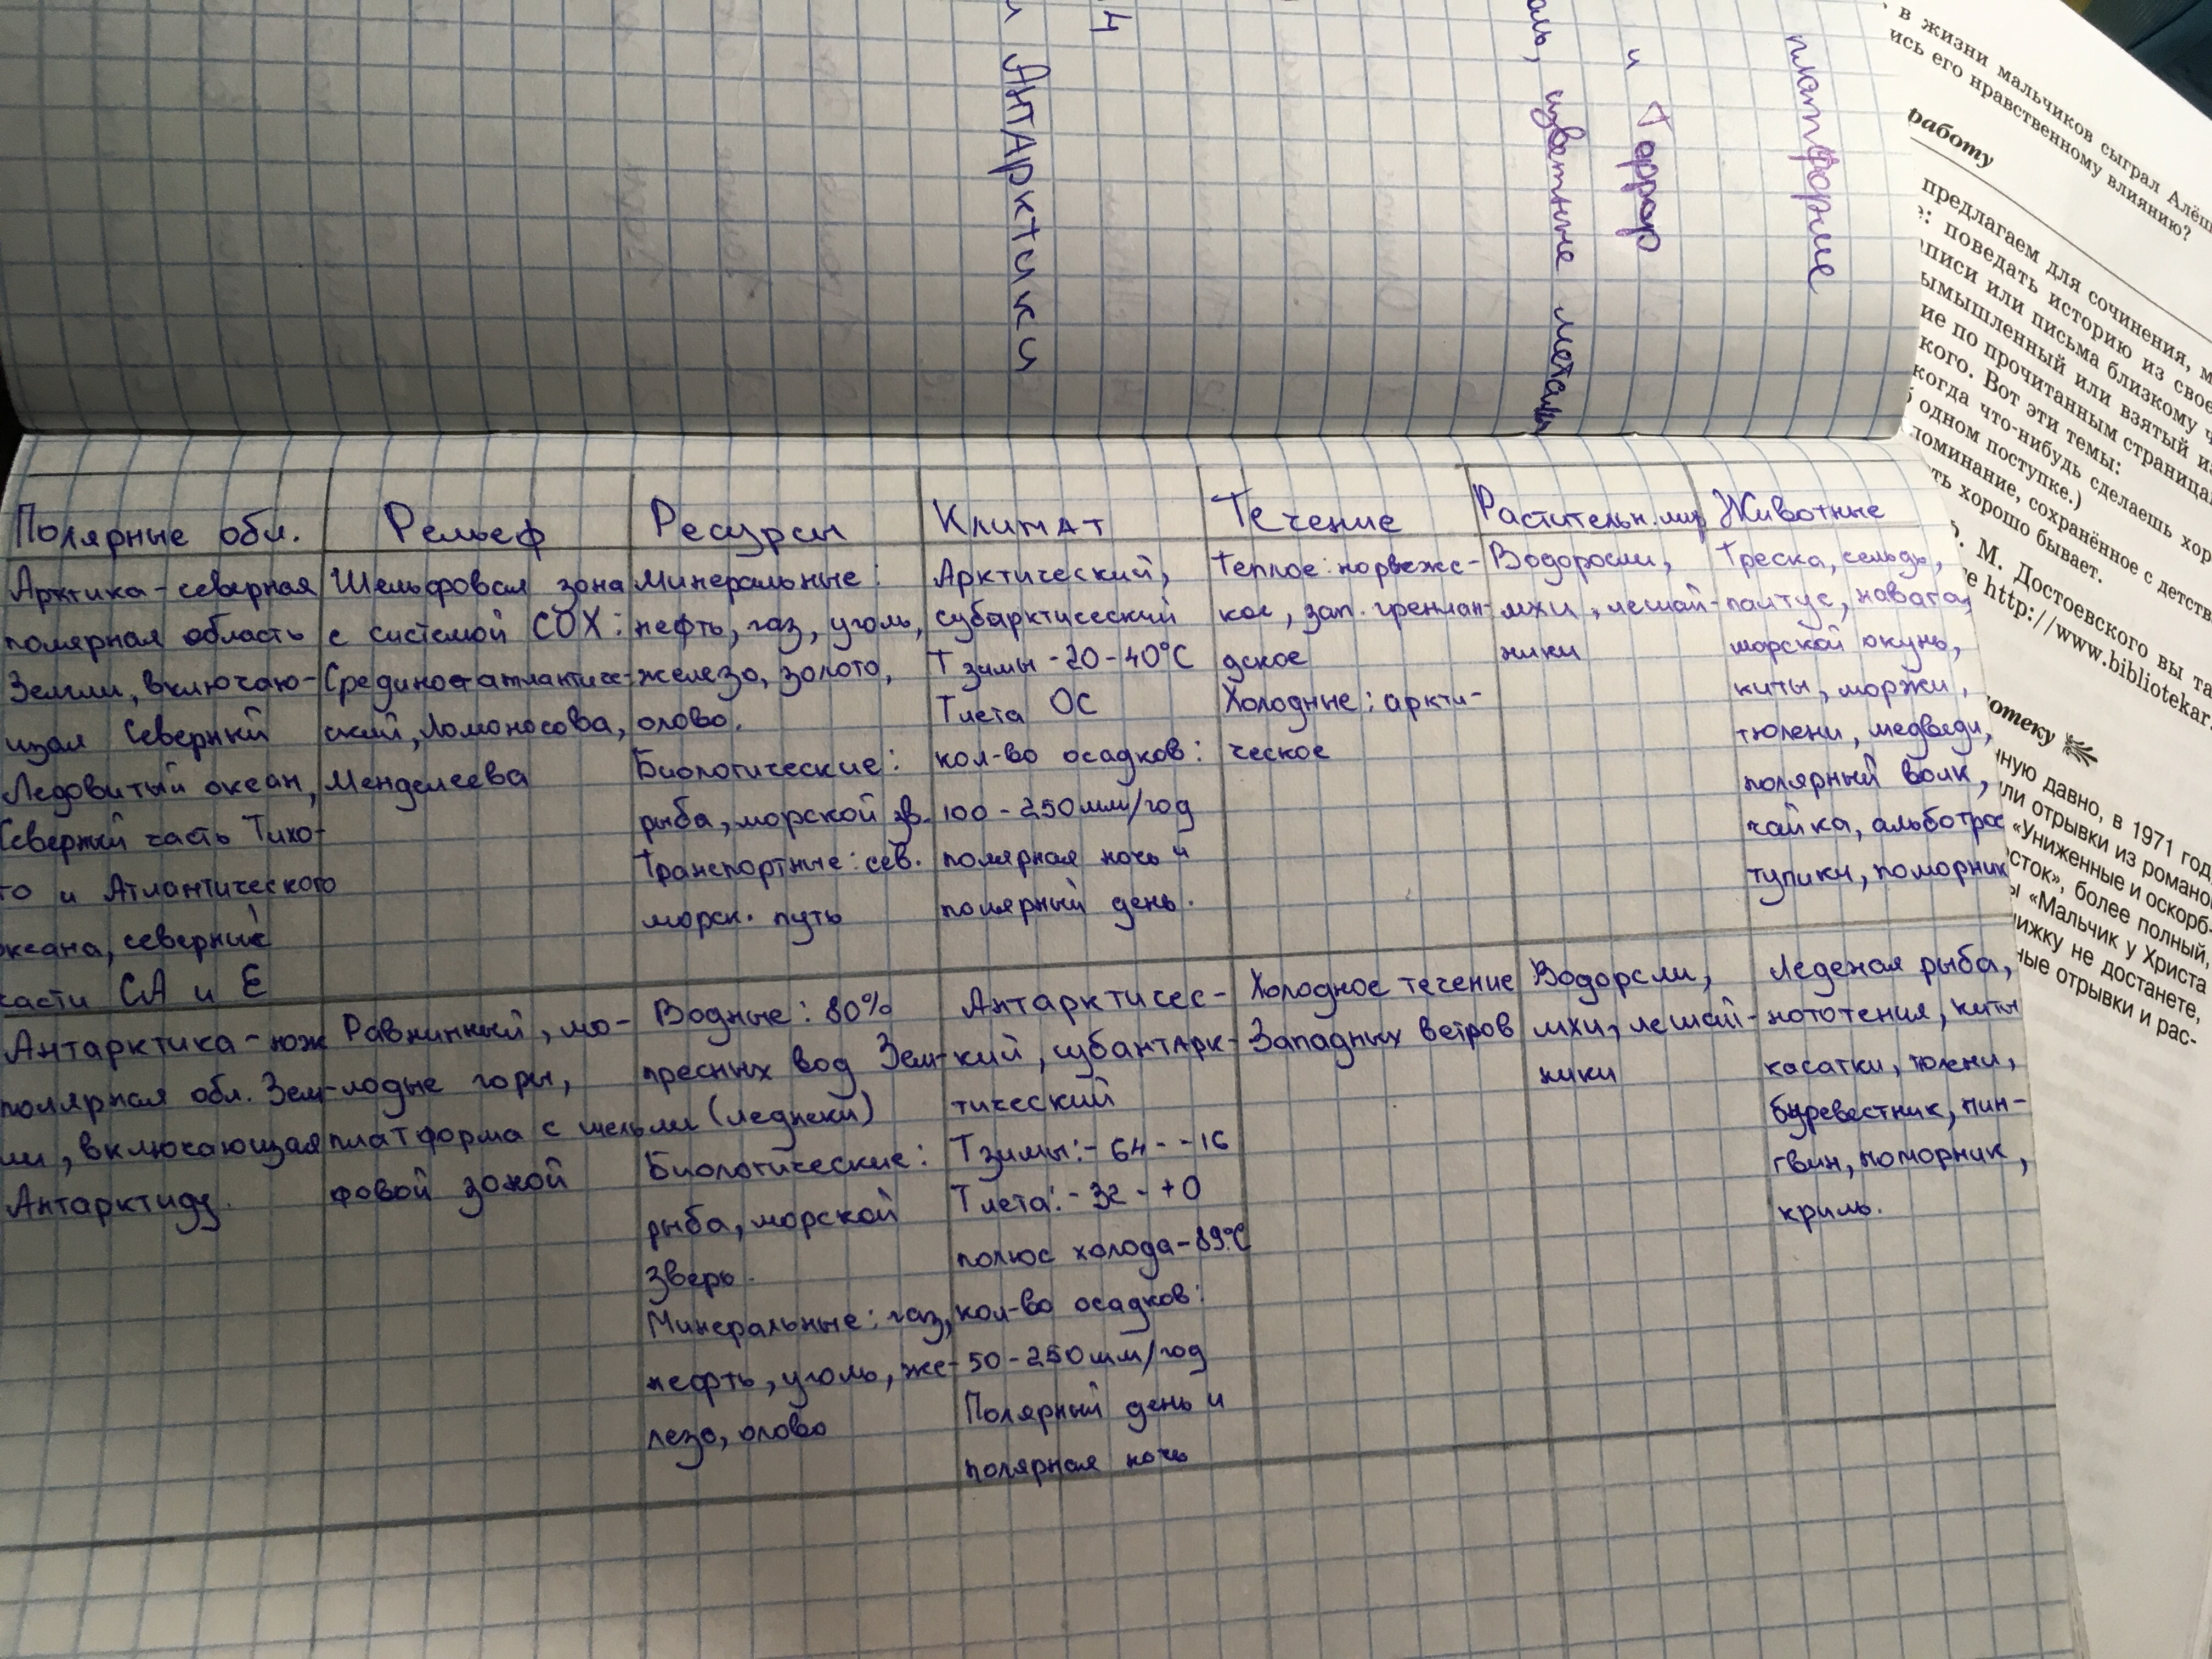 и Антарктики
4
оль, цветные металлы
и Террор
платформе
Полярные обл.
Рельеф
Ресурсы
Климат
Течение
Растительн. мир
Животные
Арктика - северная
полярная область
Земли, включаю-
щая Северный
Ледовитый океан,
Северный часть Тихо-
го и Атлантического
океана, северные
части СА и Е
Шельфовая зона
с системой СОХ:
Срединоатлантиче-
ский, Ломоносова,
Менделеева
Минеральные:
нефть, газ, уголь,
железо, золото,
олово.
Биологические:
рыба, морской зв.
Транспортные: сев.
морск. путь
Арктический,
субарктический
T зимы -20-40°C
T лета ОС
кол-во осадков:
100-250мм/год
полярная ночь и
полярный день.
Теплое: норвежс-
кое, зап. гренлан-
дское
Холодные: аркти-
ческое
Водоросли,
мхи, лешай-
ники
Треска, сельдь,
палтус, навага,
морской окунь,
киты, моржи,
тюлени, медведи,
полярный волк,
чайка, альботрос
тупики, поморник
Антарктика - юж
полярная обл. Зем-
ли, включающая
Антарктиду.
Равнинный, мо-
лодые горы,
платформа с шель
фовой зоной
Водные: 80%
пресных вод Зем-
ли (ледники)
Биологические:
рыба, морской
зверь.
Минеральные: газ,
нефть, уголь, же-
лезо, олово
Антарктичес-
кий, субантарк-
тический
Т зимы: -64 - -16
Т лета: -32 - +0
полюс холода -89°C
кол-во осадков:
50-250мм/год
Полярный день и
полярная ночь
Холодное течение
Западных ветров
Водорсли,
мхи, лешай-
ники
Леденая рыба,
нототения, киты
касатки, тюлени,
буревестник, пин-
гвин, поморник,
криль.
в жизни мальчиков сыграл Алёш
ись его нравственному влиянию?
работу
предлагаем для сочинения, м
е: поведать историю из свое
аписи или письма близкому ч
ымышленный или взятый из
ие по прочитанным страница
кого. Вот эти темы:
когда что-нибудь сделаешь хор
б одном поступке.)
поминание, сохранённое с детств
ть хорошо бывает.
. М. Достоевского вы та
те http://www.bibliotekar.
отеку
ную давно, в 1971 год
ли отрывки из романо
«Униженные и оскорб-
сток», более полный,
ы «Мальчик у Христа
нижку не достанете,
ные отрывки и рас-